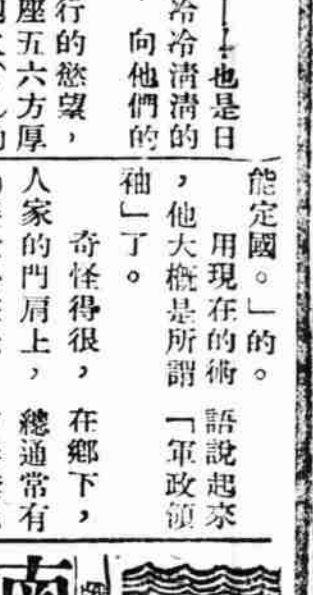 ——也是日
冷冷清清的
向他們的
行的慾望，
座五六方厚
能定國。」的。
用現在的術語說起來
，他大概是所謂「軍政領
袖」了。
奇怪得很，在鄉下，
人家的門肩上，總通常有